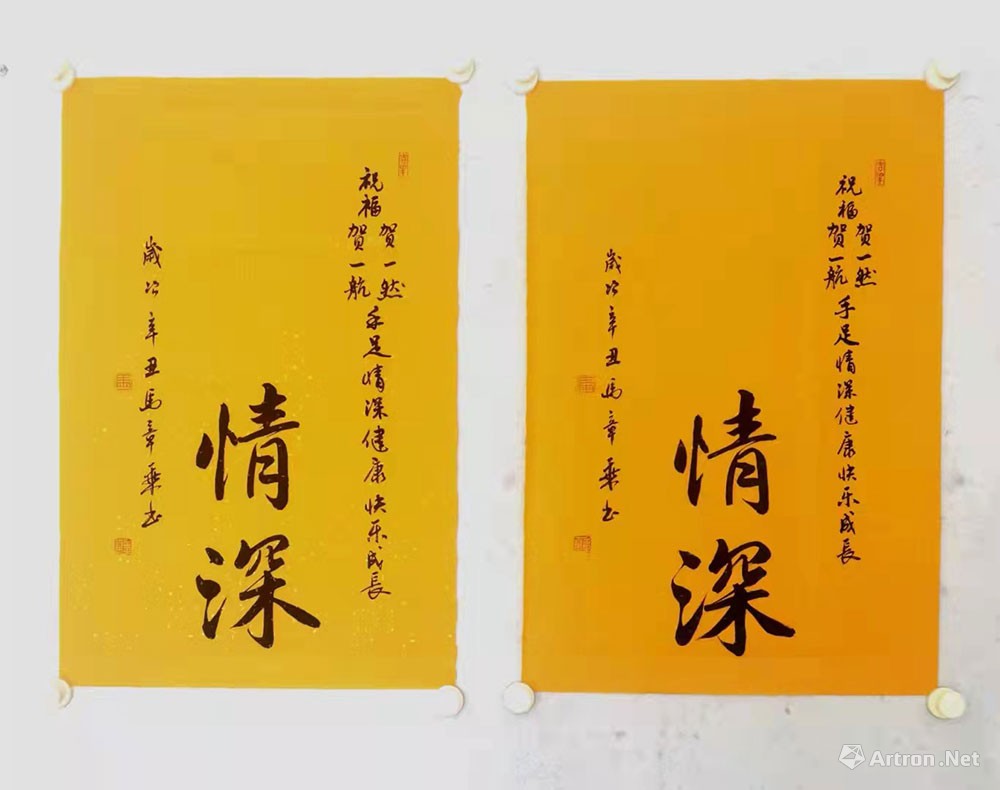 祝福
賀一然
賀一航
手足情深健康快乐成長
情深
歲次辛丑馬章乘书
祝福
賀一然
賀一航
手足情深健康快乐成長
情深
歲次辛丑馬章乘书
Artron.Net